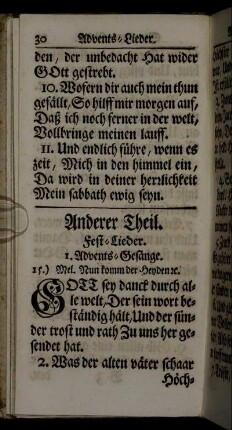 30 Advents-Lieder.
den, der unbedacht Hat wider
GOtt gestrebt.
10. Wofern dir auch mein thun
gefällt, So hilff mir morgen auf,
Daß ich noch ferner in der welt,
Vollbringe meinen lauff.
11. Und endlich führe, wenn es
zeit, Mich in den himmel ein,
Da wird in deiner herrlichkeit
Mein sabbath ewig seyn.
Anderer Theil.
Fest-Lieder.
1. Advents-Gesänge.
15.) Mel. Nun komm der Heyden ꝛc.
GOTT sey danck durch al-
le welt, Der sein wort be-
ständig hält, Und der sün-
der trost und rath Zu uns her ge-
sendet hat.
2. Was der alten väter schaar
Höch-